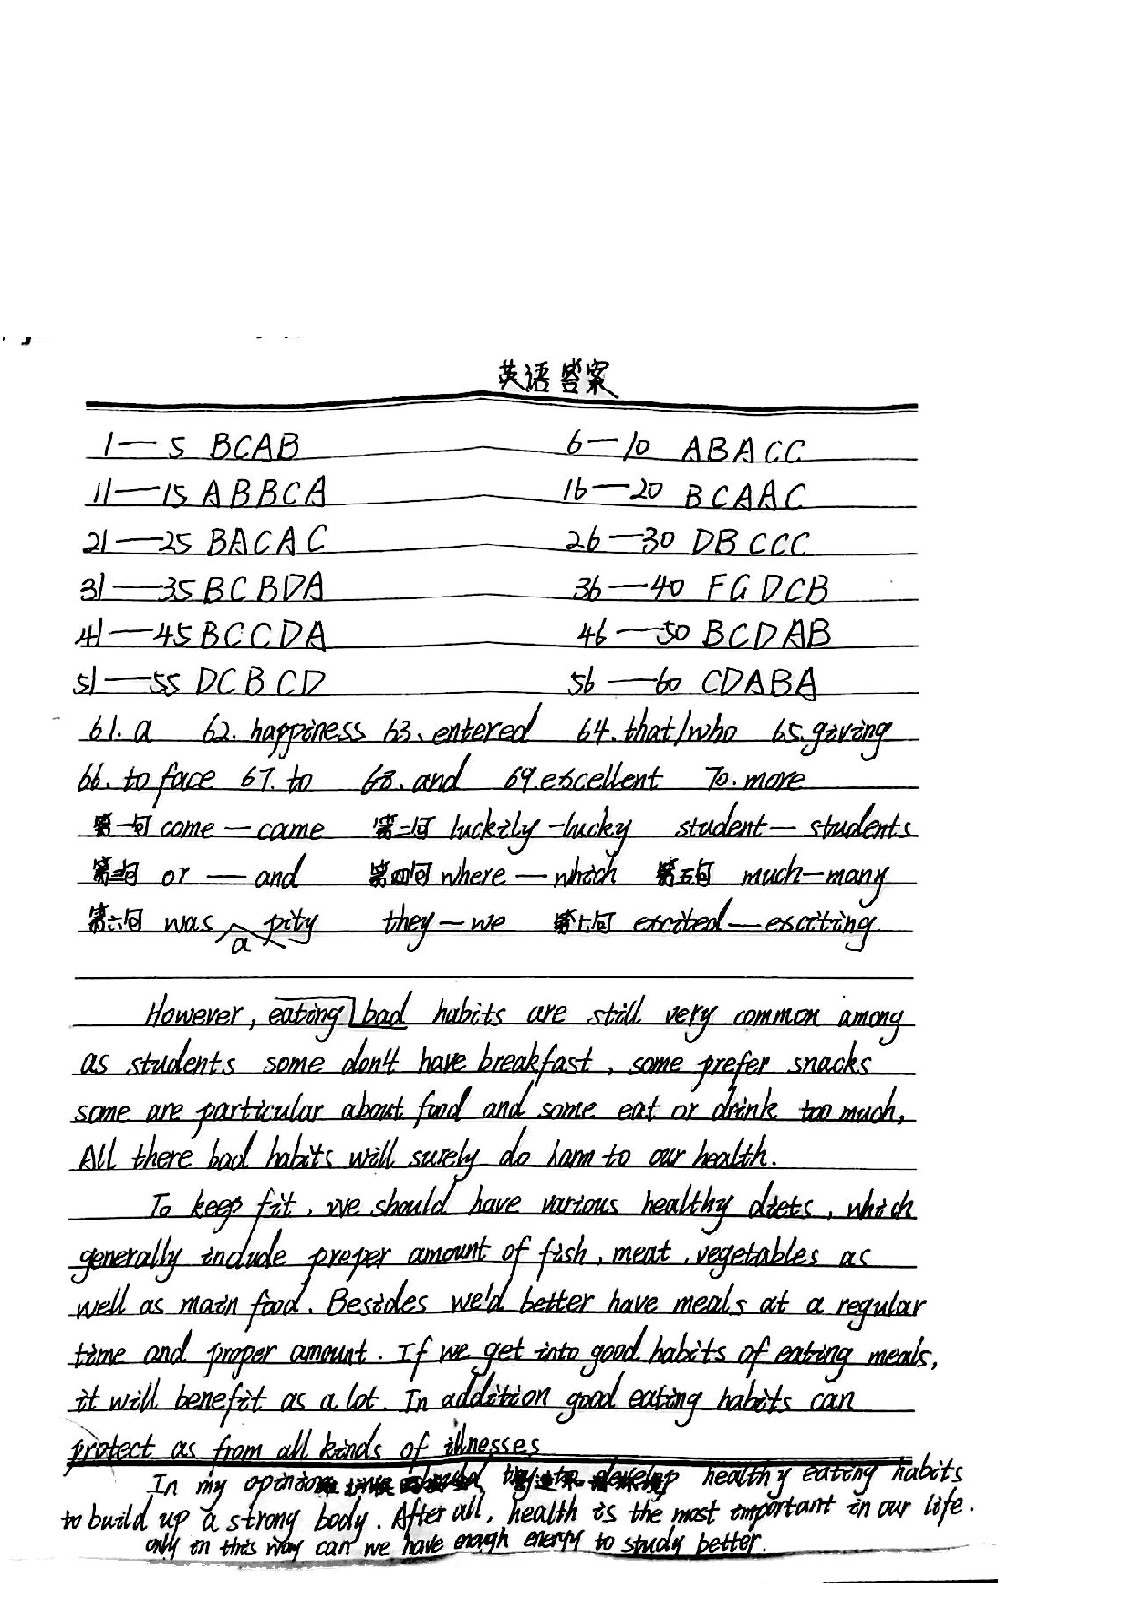 英语答案
1—5 BCAB 6—10 ABACC
11—15 ABBCA 16—20 BCAAC
21—25 BACAC 26—30 DBCCC
31—35 BCBDA 36—40 FGDCB
41—45 BCCDA 46—50 BCDAB
51—55 DCBCD 56—60 CDABA
61. a 62. happiness 63. entered 64. that/who 65. giving
66. to face 67. to 68. and 69. excellent 70. more
第一句 come—came 第二句 luckily-lucky student—students
第三句 or—and 第四句 where—which 第五句 much—many
第六句 was a pity they—we 第七句 excited—exciting
However, eating bad habits are still very common among
as students some don't have breakfast, some prefer snacks
some are particular about food and some eat or drink too much,
All there bad habits will surely do harm to our health.
To keep fit, we should have various healthy diets, which
generally include preper amount of fish, meat, vegetables as
well as main food. Besides we'd better have meals at a regular
time and proper amount. If we get into good habits of eating meals,
it will benefit as a lot. In addition good eating habits can
protect as from all kinds of illnesses
In my opinion we should try to develop healthy eating habits
to build up a strong body. After all, health is the most important in our life.
only in this way can we have enough energy to study better.